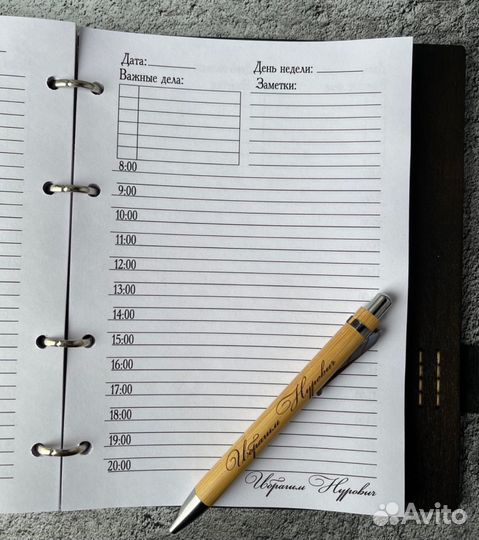 Дата: День недели:
Важные дела: Заметки:
8:00
9:00
10:00
11:00
12:00
13:00
14:00
15:00
16:00
17:00
18:00
19:00
20:00
Ибрагим Нурович
Ибрагим Нурович
Avito